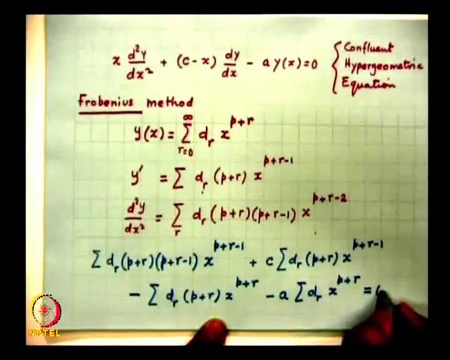 x d²y/dx² + (c-x) dy/dx - a y(x) = 0 { Confluent Hypergeometric Equation
Frobenius method
y(x) = ∑_{r=0}^{∞} d_r x^{p+r}
y' = ∑ d_r (p+r) x^{p+r-1}
d²y/dx² = ∑_r d_r (p+r)(p+r-1) x^{p+r-2}
∑ d_r (p+r)(p+r-1) x^{p+r-1} + c ∑ d_r (p+r) x^{p+r-1}
- ∑ d_r (p+r) x^{p+r} - a ∑ d_r x^{p+r} =
NPTEL